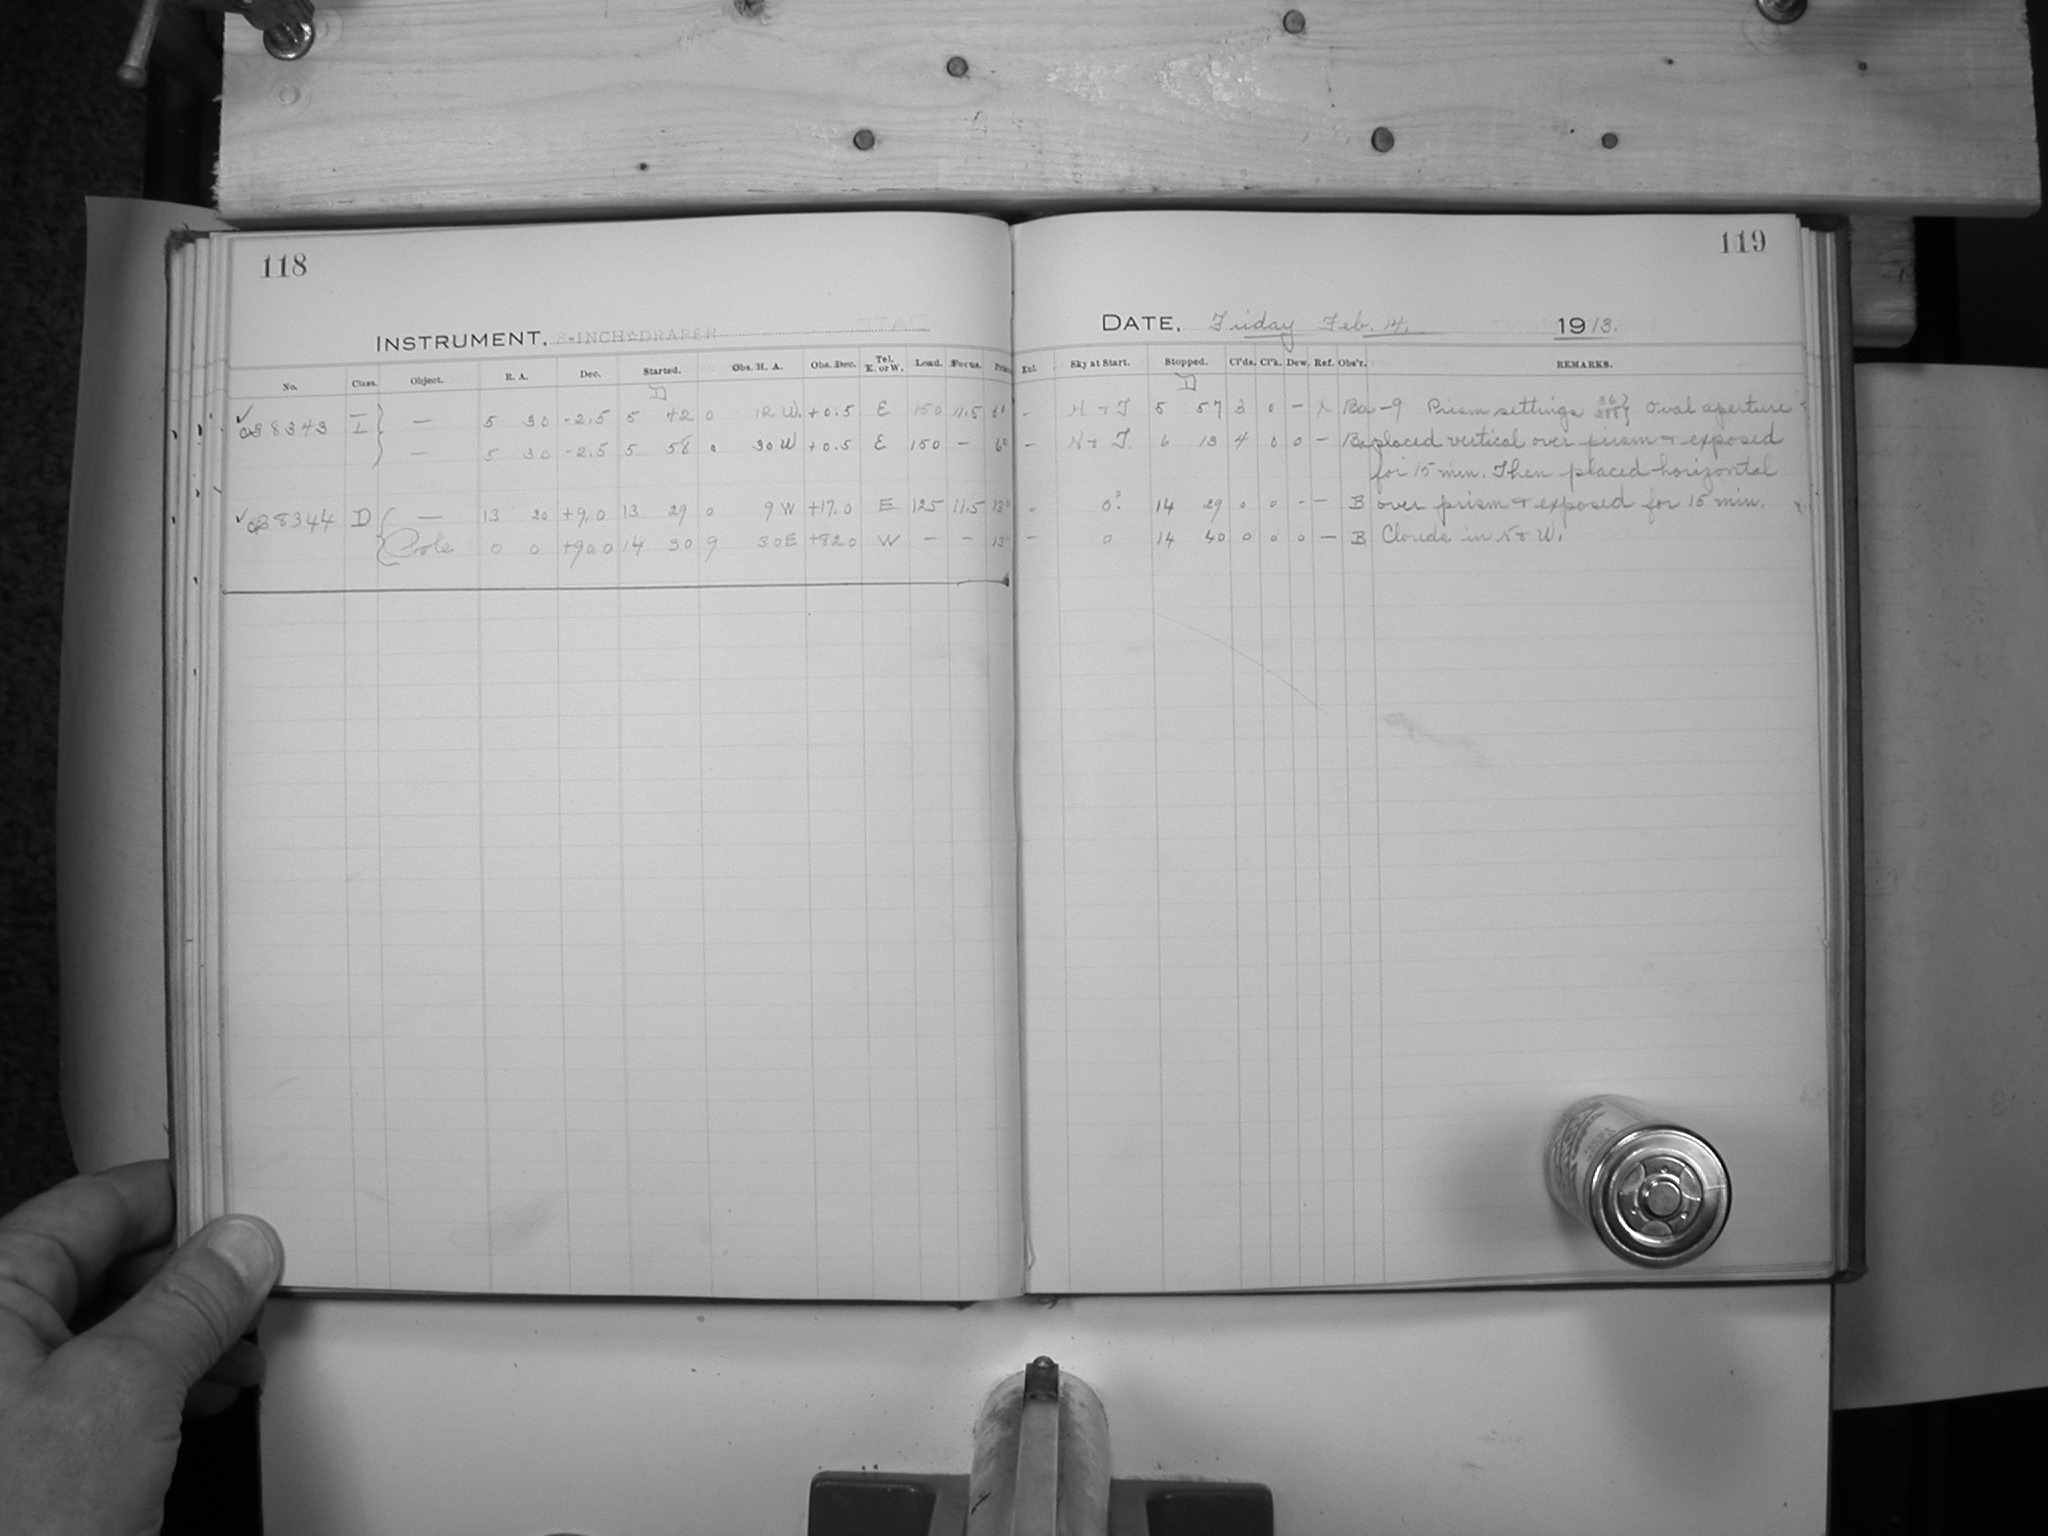 118
INSTRUMENT. 8-INCH DRAPER
No. Class. Object. R. A. Dec. Started. Obs. H. A. Obs. Dec. Tel. E. or W. Load. Focus.
D
38343 I — 5 30 -2.5 5 42 0 12 W. +0.5 E 150 11.5 6°
— 5 30 -2.5 5 58 0 30 W +0.5 E 150 — 6°
38344 D — 13 20 +9.0 13 29 0 9 W +17.0 E 125 11.5 13°
Pole 0 0 +90.0 14 30 9 30 E +82.0 W — — 13°
119
DATE, Friday Feb. 14. 1913.
Exl. Sky at Start. Stopped. Cl'ds. Cl'k. Dew. Ref. Obs'r. REMARKS.
D
- H & T 5 57 3 0 — Ba -9 Prism settings Oval aperture
- H & T. 6 13 4 0 0 — Ba placed vertical over prism & exposed
for 15 min. Then placed horizontal
0? 14 29 0 0 - — B over prism & exposed for 15 min.
— 0 14 40 0 0 0 — B Clouds in N & W.